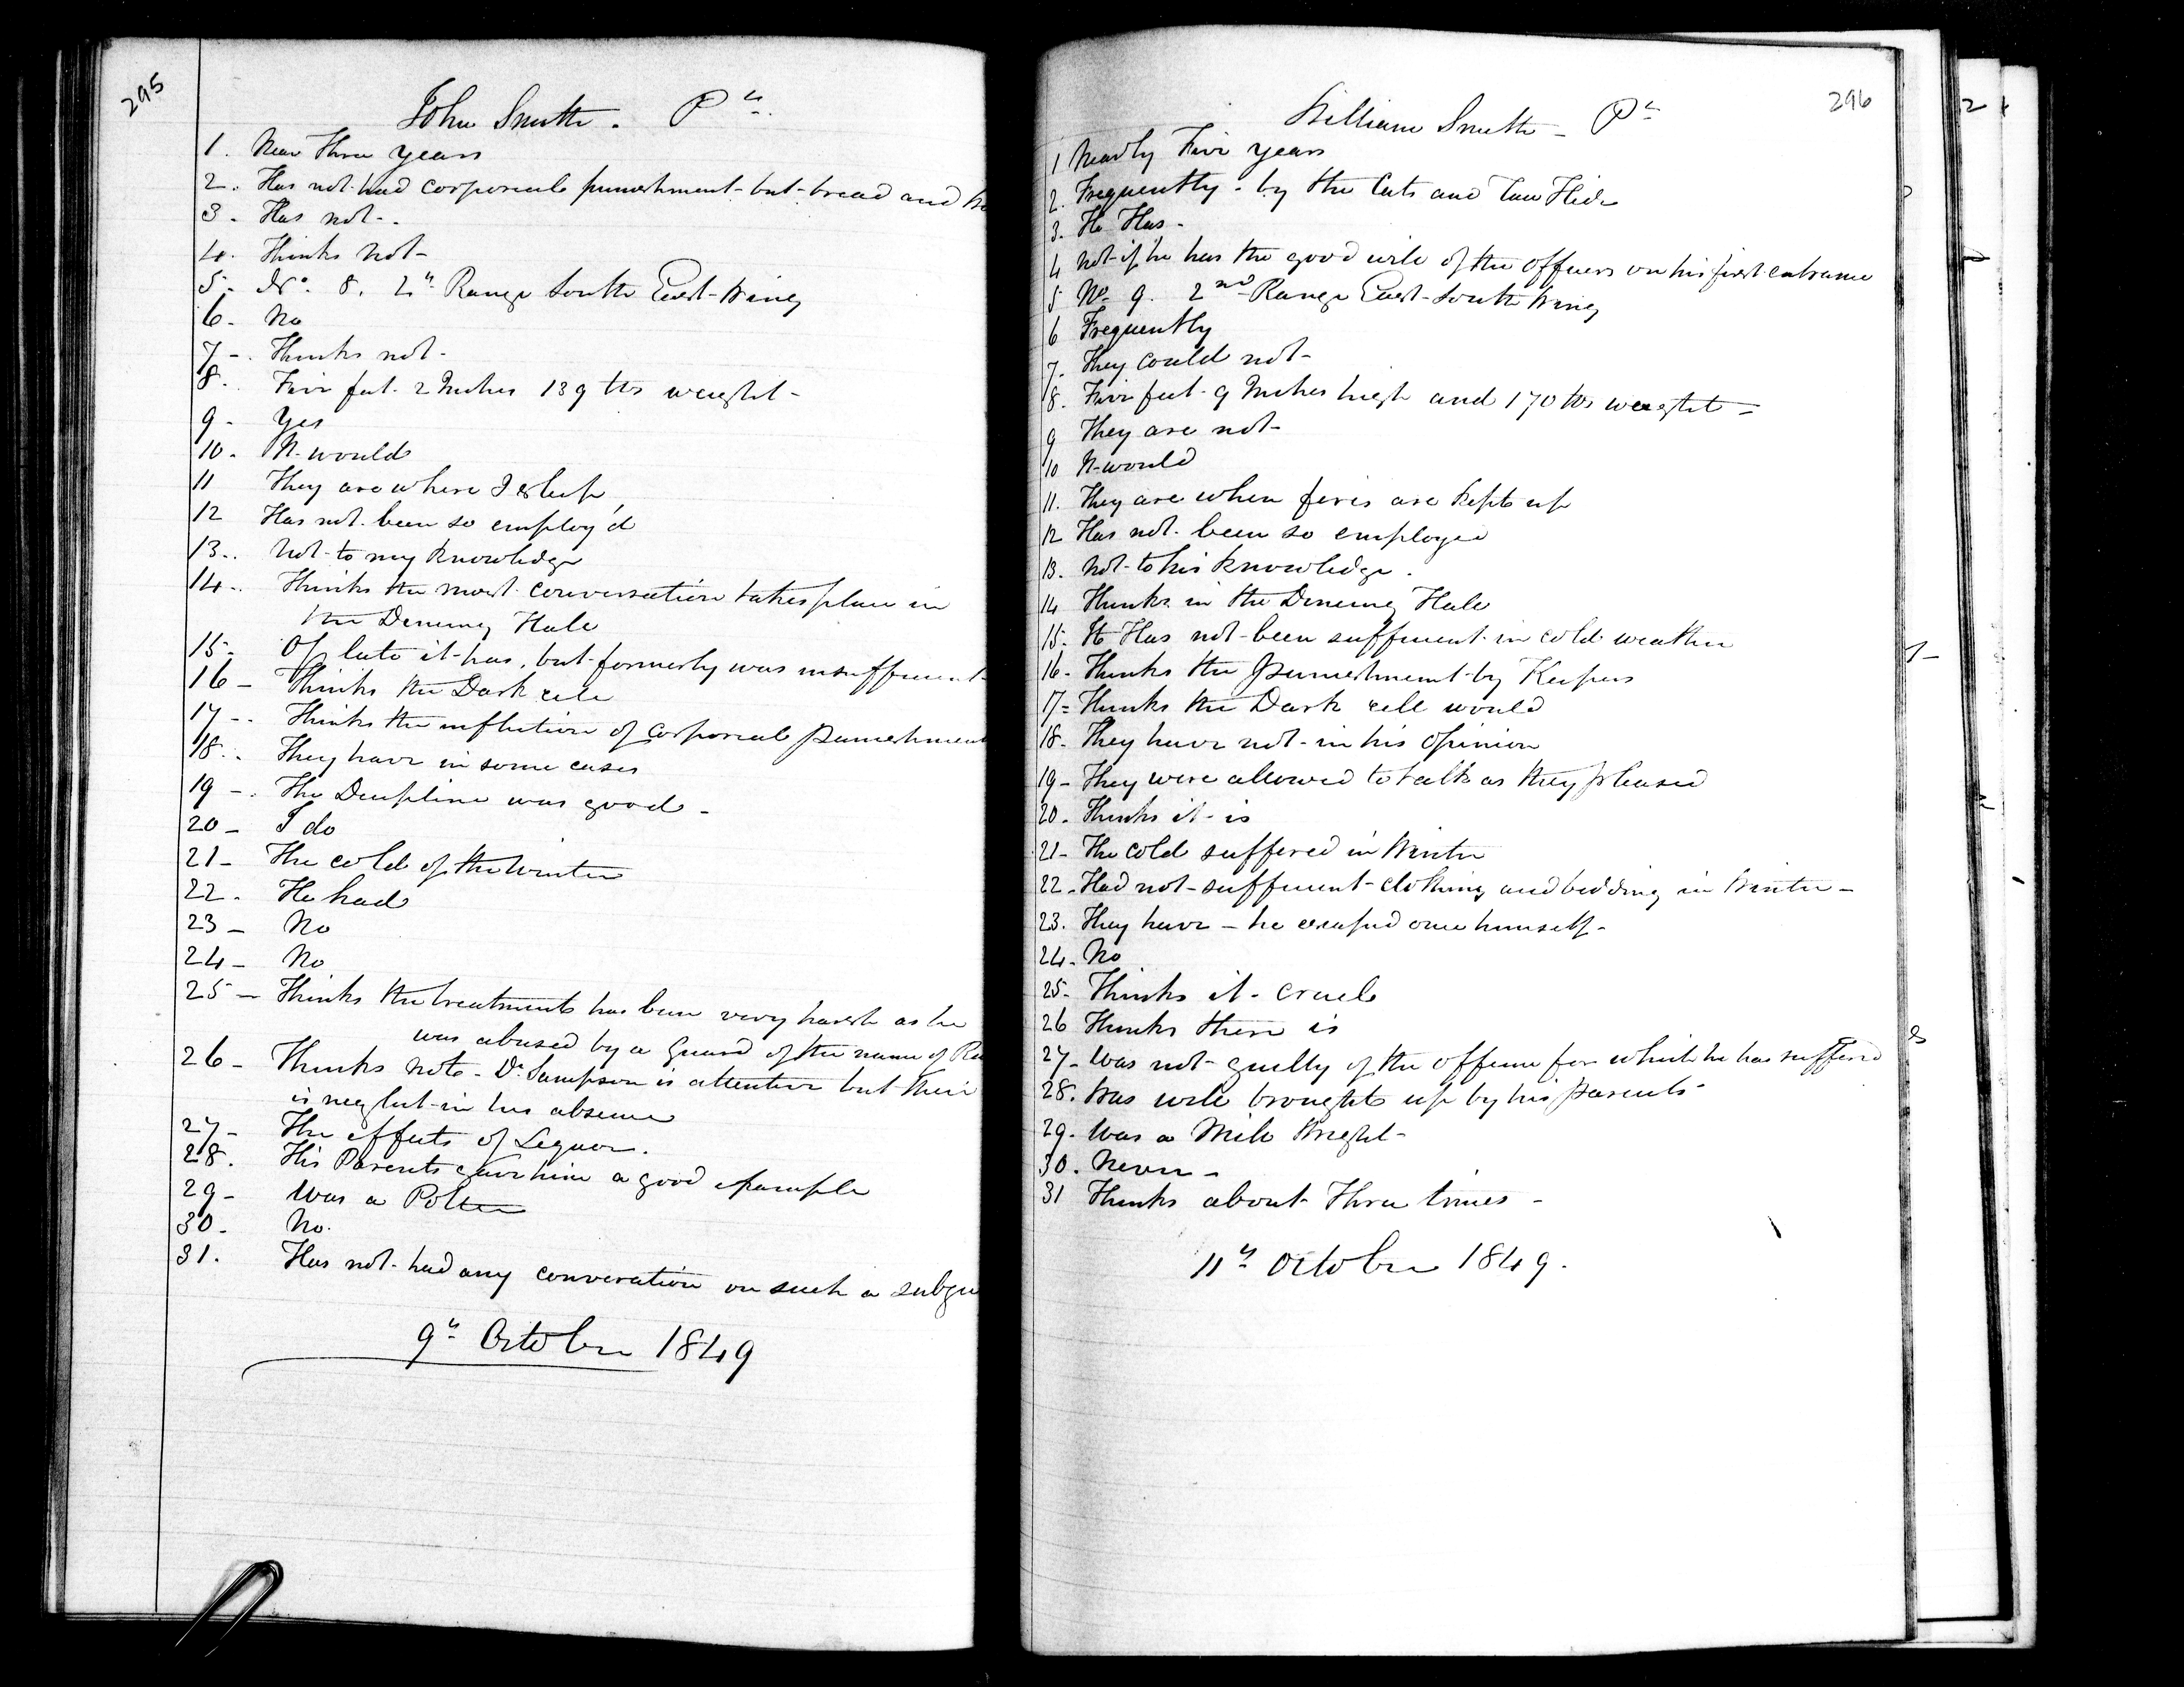 295
John Smith. Pr.
1. Near Three years
2. Has not had corporeal punishment but bread and
3. Has not.
4. Thinks not
5. No. 8. 2d Range South East Wing
6. No
7. Thinks not
8. Five feet 2 Inches 139 lbs weight
9. Yes
10. It would
11 They are where I sleep
12 Has not been so employ'd
13. Not to my knowledge
14. Thinks the most conversation takes place in
the Dineing Hall
15. Of late it has, but formerly was insufficient
16 Thinks the Dark cell
17. Thinks the infliction of corporeal punishment
18. They have in some cases
19. The Decipline was good
20 I do
21 The cold of the winter
22. He had
23 No
24 No
25 Thinks the treatment has been very harsh as he
was abused by a Guard of the name of
26 Thinks not. Dr Sampson is attentive but their
is neglect in his absence
27 The effects of Lequor.
28. His Parents gave him a good example
29 Was a Potter
30. No.
31. Has not had any converation on such a
9th October 1849
296
William Smith Pr
1 Nearly Five years
2. Frequently by the Cats and Raw Hide
3. He Has
4 Not if he has the good will of the officers on his first entrance
5 No. 9. 2nd Range East South Wing
6 Frequently
7. They could not
8. Five feet 9 Inches high and 170 lbs weight
9 They are not
10 It would
11. They are when fires are kept up
12 Has not been so employed
13. Not to his knowledge.
14 Thinks in the Dineing Hall
15. It Has not been sufficient in cold weather
16. Thinks the punishment by Keepers
17 Thinks the Dark cell would
18. They have not in his opinion
19 They were allowed to talk as they pleased
20. Thinks it is
21 The cold suffered in Winter
22. Had not sufficient clothing and bedding in Winter
23. They have he escaped once himself
24. No
25. Thinks it cruel
26 Thinks there is
27 Was not guilty of the offence for which he has suffered
28. Was well brought up by his Parents
29. Was a Mill Wright
30. Never
31 Thinks about Three times
11th October 1849.